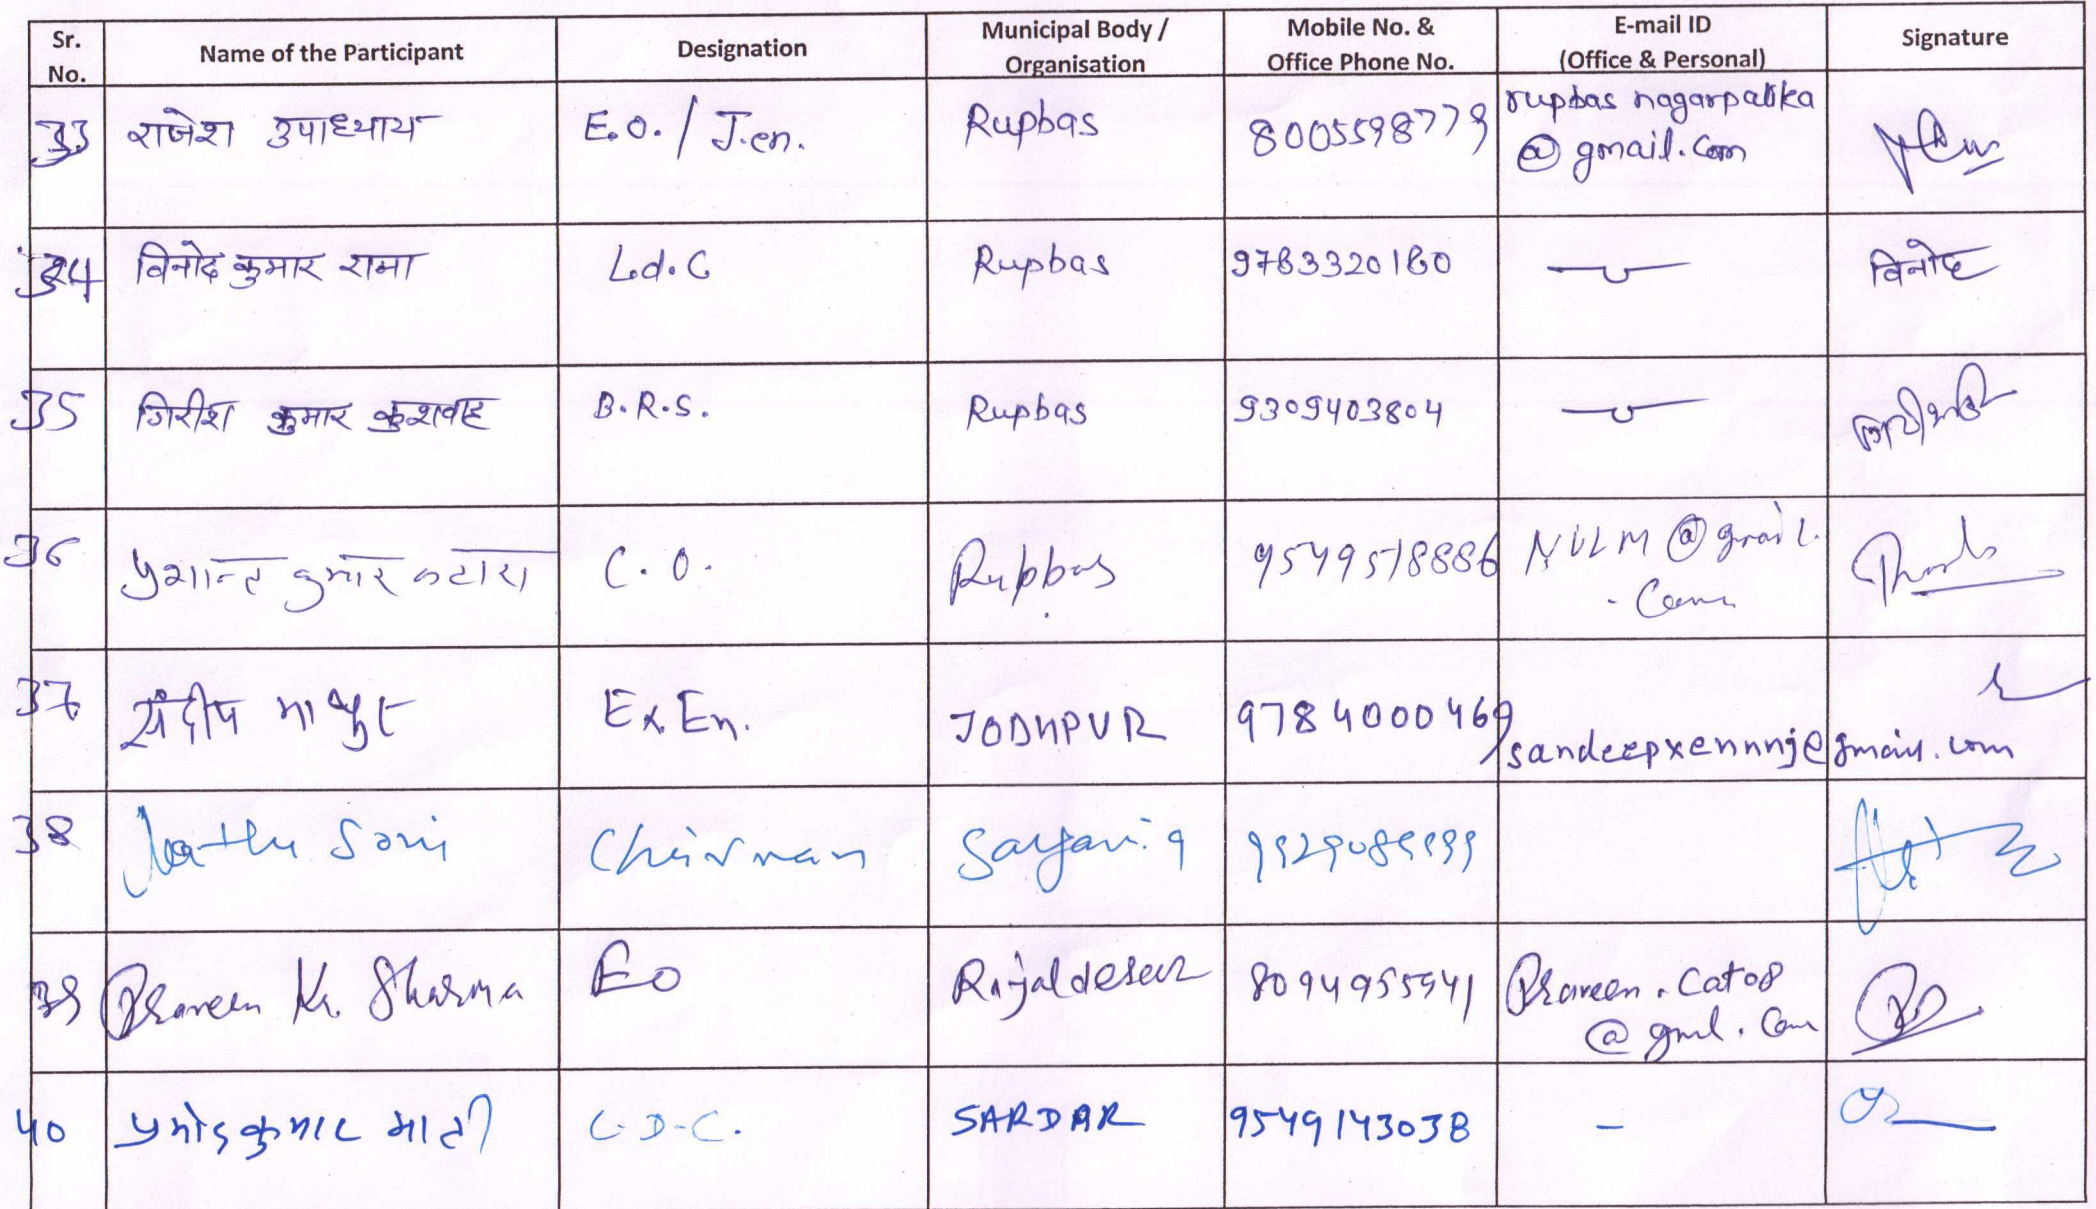 Sr. No. Name of the Participant Designation Municipal Body / Organisation Mobile No. & Office Phone No. E-mail ID (Office & Personal) Signature
33 राजेश उपाध्याय E.O. / J.en. Rupbas 8005598779 rupbas nagarpalika @ gmail.com
34 विनोद कुमार शर्मा L.d.C Rupbas 9783320180 विनोद
35 गिरीश कुमार कुशवाह B.R.S. Rupbas 9309403804
36 प्रशान्त कुमार कटारा C.O. Rupbas 9549578886 NULM @ gmail. .Com
37 संदीप माथुर Ex En. JODHPUR 9784000469 sandeepxennnj@gmail.com
38 Nathu Soni Chairman 9929089999
39 Praveen Kr. Sharma EO Rajaldesar 8094955541 Praveen.Cat08 @ gml.Com
40 प्रमोद कुमार माटी L.D.C. SARDAR 9549143038 –